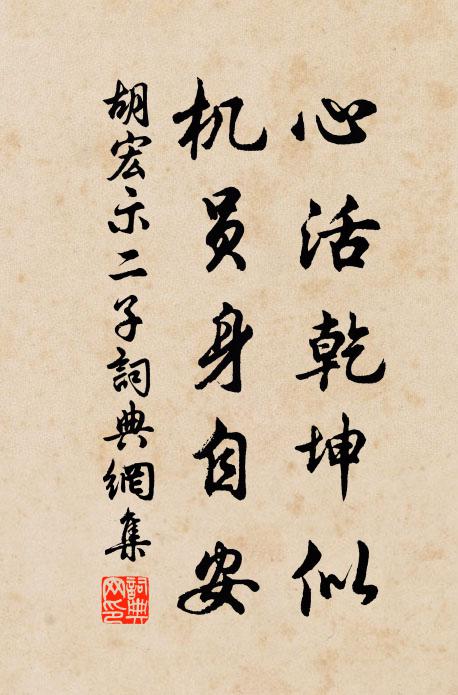 心活乾坤似
机员身自安
胡宏示二子詞典網集
詞典网印